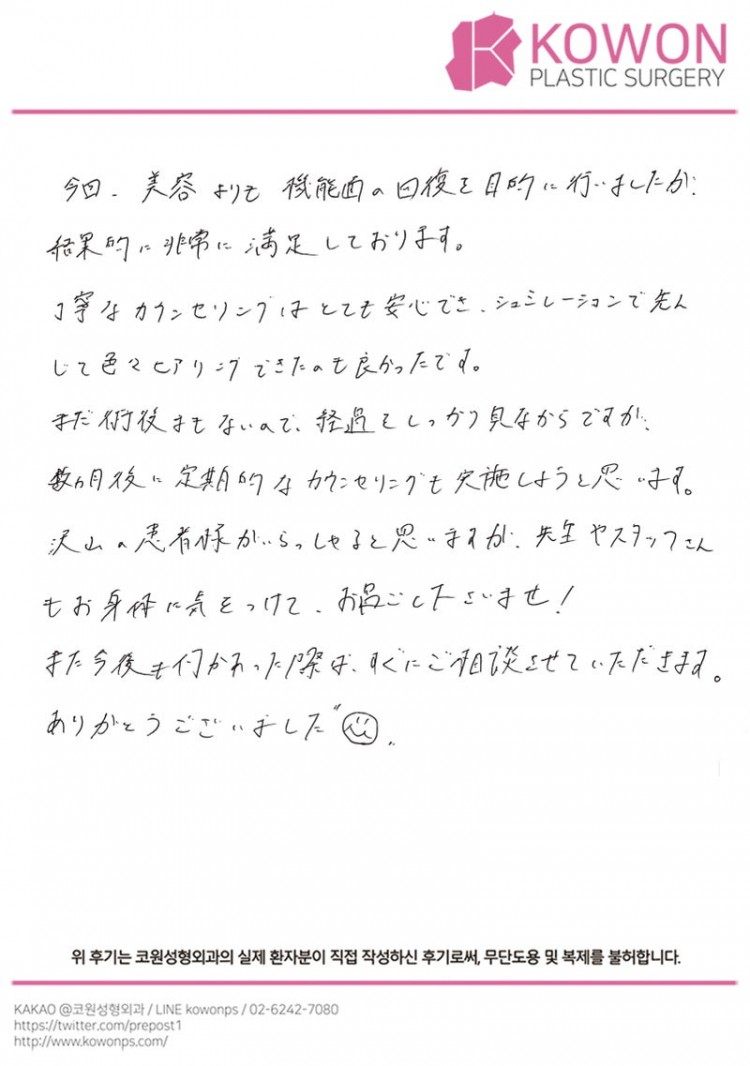 KOWON
PLASTIC SURGERY
今回、美容よりも機能面の回復を目的に行いましたが、
結果的に非常に満足しております。
丁寧なカウンセリングはとても安心でき、シュミレーションで先ん
じて色々ヒアリングできたのも良かったです。
まだ術後まもないので、経過をしっかり見ながらですが、
数ヵ月後に定期的なカウンセリングも実施しようと思います。
沢山の患者様がいらっしゃると思いますが、先生やスタッフさん
もお身体に気をつけて、お過ごし下さいませ!
また今後も何かあった際は、すぐにご相談させていただきます。
ありがとうございました
위 후기는 코원성형외과의 실제 환자분이 직접 작성하신 후기로써, 무단도용 및 복제를 불허합니다.
KAKAO @코원성형외과 / LINE kowonps / 02-6242-7080
https://twitter.com/prepost1
http://www.kowonps.com/